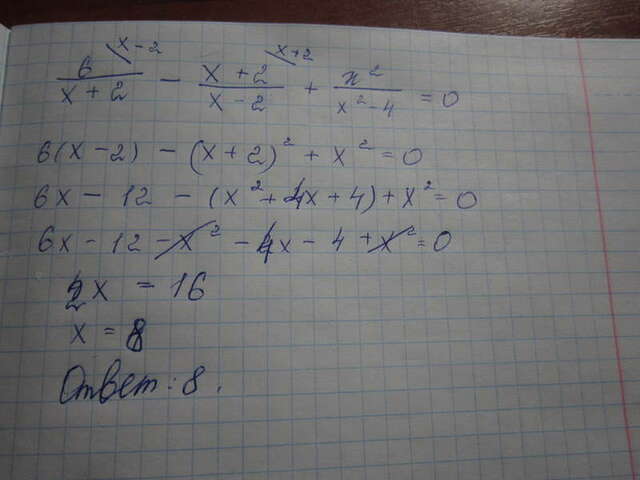 6\x-2/(x+2) - (x+2)\x+2/(x-2) + x²/(x²-4) = 0
6(x-2) - (x+2)² + x² = 0
6x - 12 - (x² + 4x + 4) + x² = 0
6x - 12 - x² - 4x - 4 + x² = 0
2x = 16
x = 8
Ответ: 8.